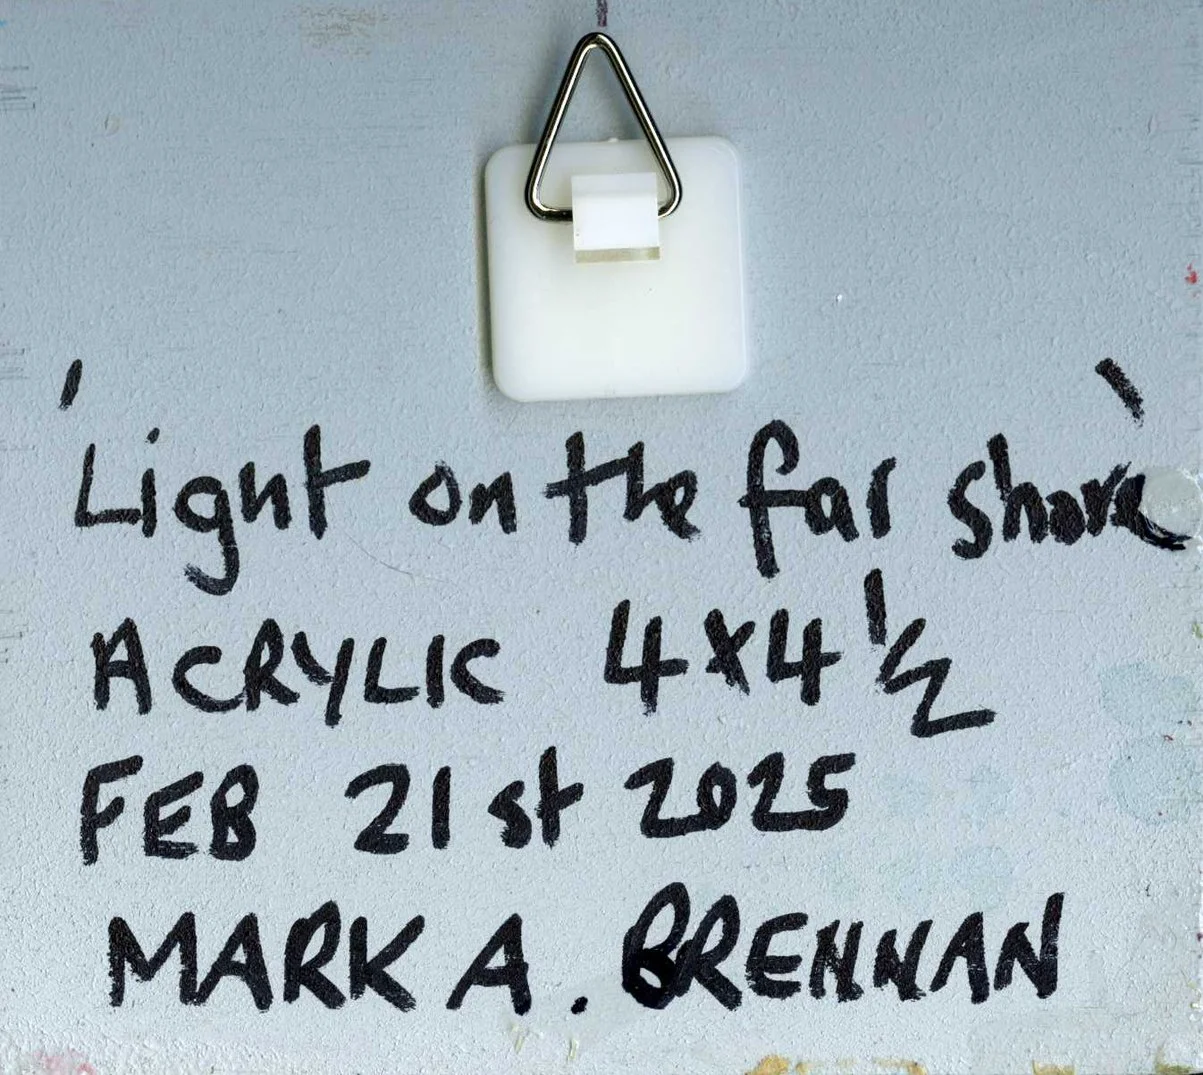 'Light on the far shore'
ACRYLIC 4x4 1/2
FEB 21st 2025
MARK A. BRENNAN